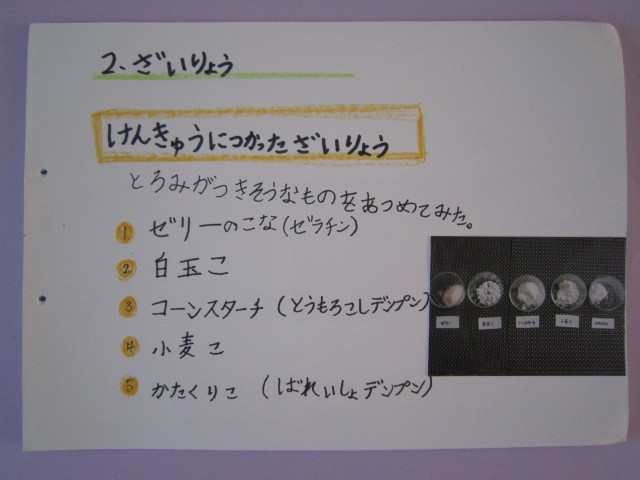 2、ざいりょう
けんきゅうにつかったざいりょう
とろみがつきそうなものをあつめてみた。
1 ゼリーのこな(ゼラチン)
2 白玉こ
3 コーンスターチ(とうもろこしデンプン)
4 小麦こ
5 かたくりこ(ばれいしょデンプン)